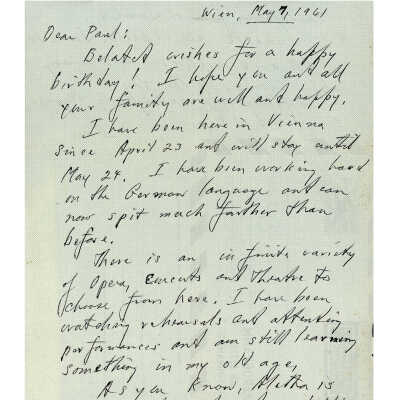 Wien, May 7, 1961
Dear Paul:
Belated wishes for a happy
birthday! I hope you and all
your family are well and happy.
I have been here in Vienna
since April 23 and will stay until
May 24. I have been working hard
on the German language and can
now spit much farther than
before.
There is an infinite variety
of Opera, Concerts and Theatre to
choose from here. I have been
watching rehearsals and attending
performances and am still learning
something in my old age,
As you know, Aletha is